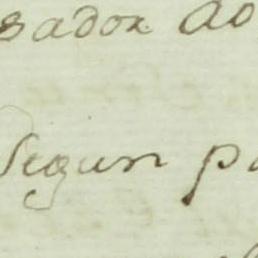 sador do
Segun pa